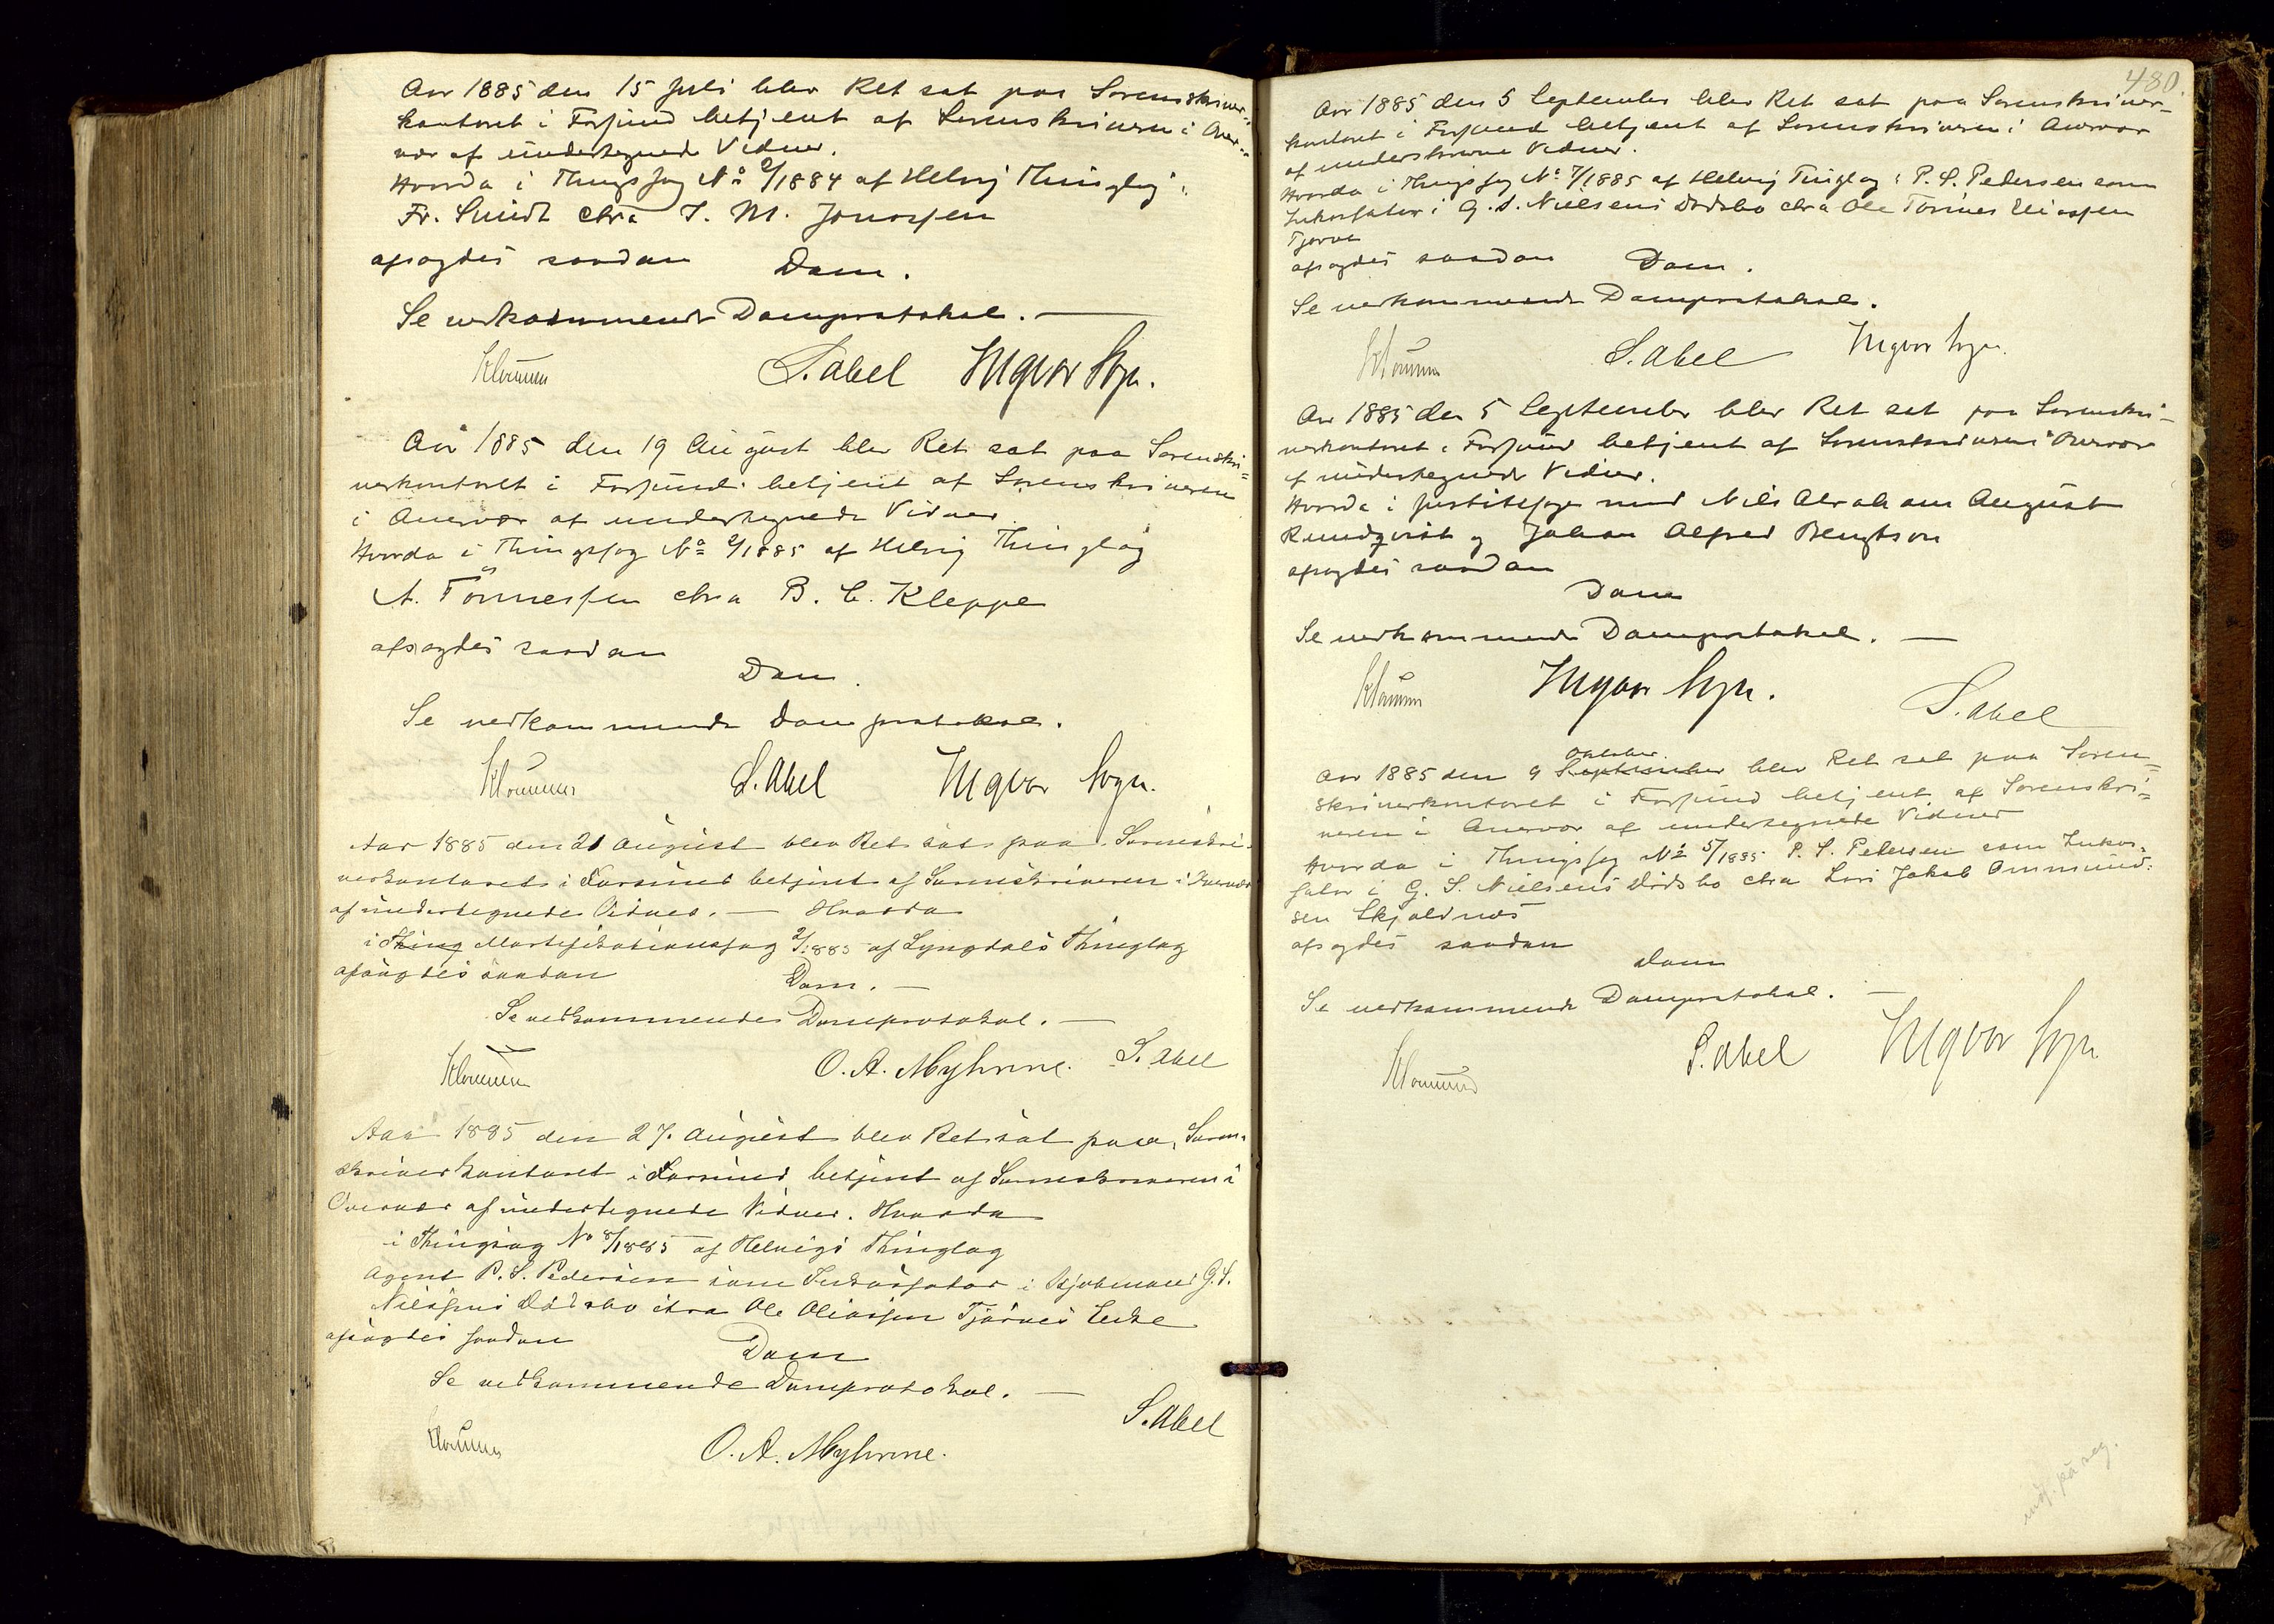 Aar 1885 den 15 Juli blev Ret sat paa Sorenskriver-
kontoret i Farsund betjent af Sorenskriveren i Over-
vær af undertegnede Vidner.
Hvorda i Thingssag No 2/1884 af Helvig Thinglag:
Fr. Smidt ctra J. M. Jonassen
afsagdes saadan Dom.
Se vedkommende Domprotokol. —
S. Abel Ingvar Sogn.
Aar 1885 den 19 August blev Ret sat paa Sorenskri=
verkontoret i Farsund betjent af Sorenskriveren
i Overvær af undertegnede Vidner
Hvorda i Thingssag No 2/1885 af Helvig Thinglag
A. Tönnessen ctra B. C. Kleppe
afsagdes saadan
Dom.
Se vedkommende Domprotokol.
S. Abel Ingvar Sogn.
Aar 1885 den 21 August blev Ret sat paa Sorenskri-
verkontoret i Farsund betjent af Sorenskriveren i Overvær
af undertegnede Vidner. — Hvorda
i Thing Mortifikationssag 2/1885 af Lyngdals Thinglag
afsagdes saadan Dom. —
Se vedkommendes Domprotokol. —
O. A. Myhrene. S. Abel
Aar 1885 den 27. August blev Ret sat paa Soren-
skriverkontoret i Farsund betjent af Sorenskriveren i
Overvær af undertegnede Vidner. Hvorda
i Thingssag No 8/1885 af Helvigs Thinglag
Agent P. S. Pedersen som Inkassator i Kjøbmand G. S.
Nielsens Dødsbo ctra Ole Oliassen Tjørves Enke
afsagdes saadan
Dom
Se vedkommende Domprotokol. —
S. Abel
O. A. Myhrene.
480.
Aar 1885 den 5 September blev Ret sat paa Sorenskriver-
kontoret i Farsund betjent af Sorenskriveren i Overvær
af underskrevne Vidner.
Hvorda i Thingssag No 7/1885 af Helvig Tinglag: P. S. Pedersen som
Inkassator i G. S. Nielsens Dødsbo ctra Ole Tørres Eliassen
Tjørve
afsagdes saadan Dom.
Se vedkommende Domprotokol.
S. Abel Ingvar Sogn.
Aar 1885 den 5 September blev Ret sat paa Sorenskri-
verkontoret i Farsund betjent af Sorenskriveren i Overvær
af undertegnede Vidner.
Hvorda i Justitssag mod Nils Abraham August
Rundqvist og Johan Alfred Bengtson
afsagdes saadan
Dom
Se vedkommende Domprotokol. —
Ingvar Sogn. S. Abel
Oktober
Aar 1885 den 9 September blev Ret sat paa Soren=
skriverkontoret i Farsund betjent af Sorenskri=
veren i Overvær af undertegnede Vidner
Hvorda i Thingssag No 5/1885 P. S. Pedersen som Inkas=
sator i G. S. Nielsens Dødsbo ctra Lars Jakob Ommund-
sen Skjoldnæs
afsagdes saadan
Dom
Se vedkommende Domprotokol. —
S. Abel Ingvar Sogn